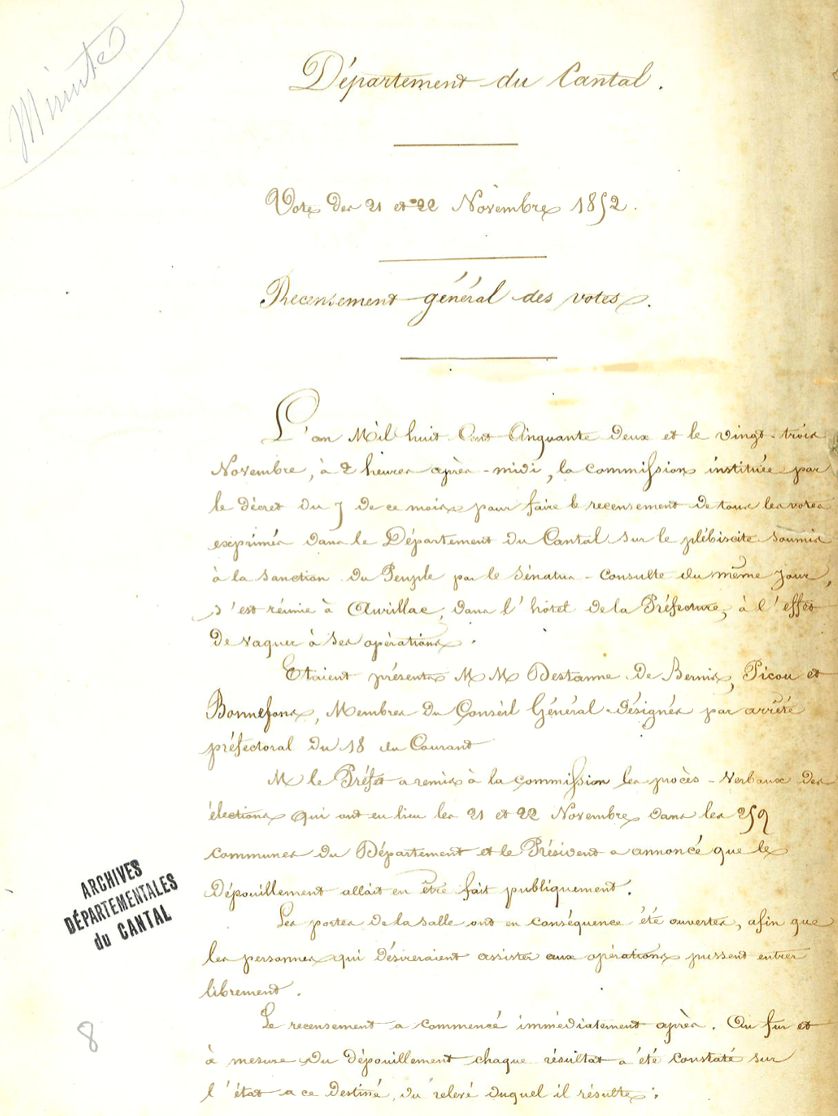 Minute
Département du Cantal.
Vote des 21 et 22 Novembre 1852.
Recensement général des votes.
L'an Mil huit Cent Cinquante deux et le vingt-trois
Novembre, à 2 heures après-midi, la commission instituée par
le décret du 7 de ce mois pour faire le recensement de tous les votes
exprimés dans le Département du Cantal sur le plébiscite soumis
à la sanction du Peuple par le Sénatus-consulte du même jour,
s'est réunie à Aurillac, dans l'hôtel de la Préfecture, à l'effet
de vaquer à ses opérations.
Etaient présents M M Destanne de Bernis, Picou et
Bonnefons, Membres du Conseil Général désignés par arrêté
préfectoral du 18 du Courant
M le Préfet a remis à la commission les procès-Verbaux des
élections qui ont eu lieu les 21 et 22 Novembre dans les 259
communes du Département et le Président a annoncé que le
dépouillement allait en être fait publiquement.
Les portes de la salle ont en conséquence été ouvertes, afin que
les personnes qui désireraient assister aux opérations pussent entrer
librement.
Le recensement a commencé immédiatement après. Au fur et
à mesure du dépouillement chaque résultat a été constaté sur
l'état a ce destiné, du relevé duquel il résulte :
ARCHIVES
DÉPARTEMENTALES
du CANTAL
8